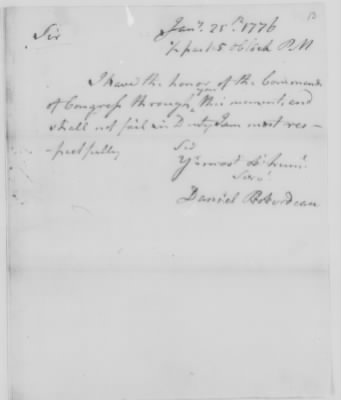 13
Jany. 25th. 1776
Sir
½ past 5 oClock P.M
I have the honor of the Commands
of Congress through you this moment, and
shall not fail in Duty I am most res-
pectfully
Sir
Yr. most Ob. hum.
Serv.
Daniel Roberdeau